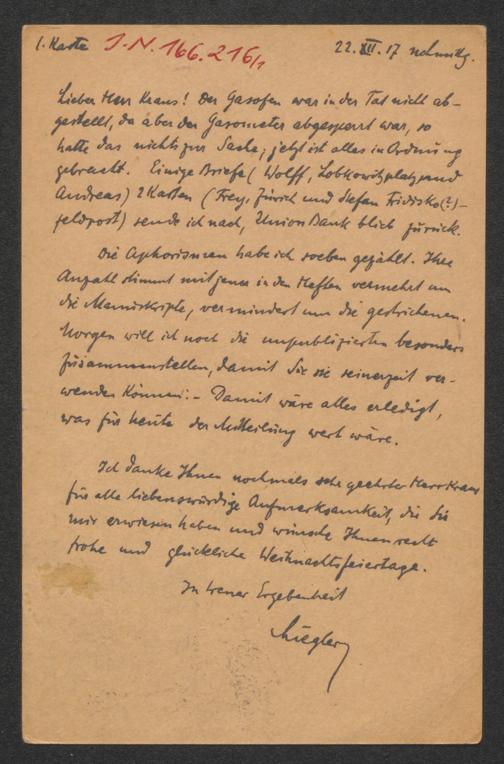 1. Karte J.N. 166.216/1 22.XII.17 nchmittg.
Lieber Herr Kraus! Der Gasofen war in der Tat nicht ab-
gestellt, da aber der Gasometer abgesperrt war, so
hatte das nichts zur Sache; jetzt ist alles in Ordnung
gebracht. Einige Briefe (Wolff, Lobkowitzplatz und
Andreas) 2 Karten (Frey, Zürich und Stefan Fridisko(?)-
feldpost) sende ich nach, Union Bank blieb zurück.
Die Aphorismen habe ich soeben gezählt. Ihre
Anzahl stimmt mit jener in den Heften vermehrt um
die Manuskripte, vermindert um die gestrichenen.
Morgen will ich noch die unpublizierten besonders
zusammenstellen, damit Sie sie seinerzeit ver-
wenden können. – Damit wäre alles erledigt,
was für heute der Mitteilung wert wäre.
Ich danke Ihnen nochmals sehr geehrter Herr Kraus
für alle liebenswürdige Aufmerksamkeit, die Sie
mir erwiesen haben und wünsche Ihnen recht
frohe und glückliche Weihnachtsfeiertage.
In treuer Ergebenheit